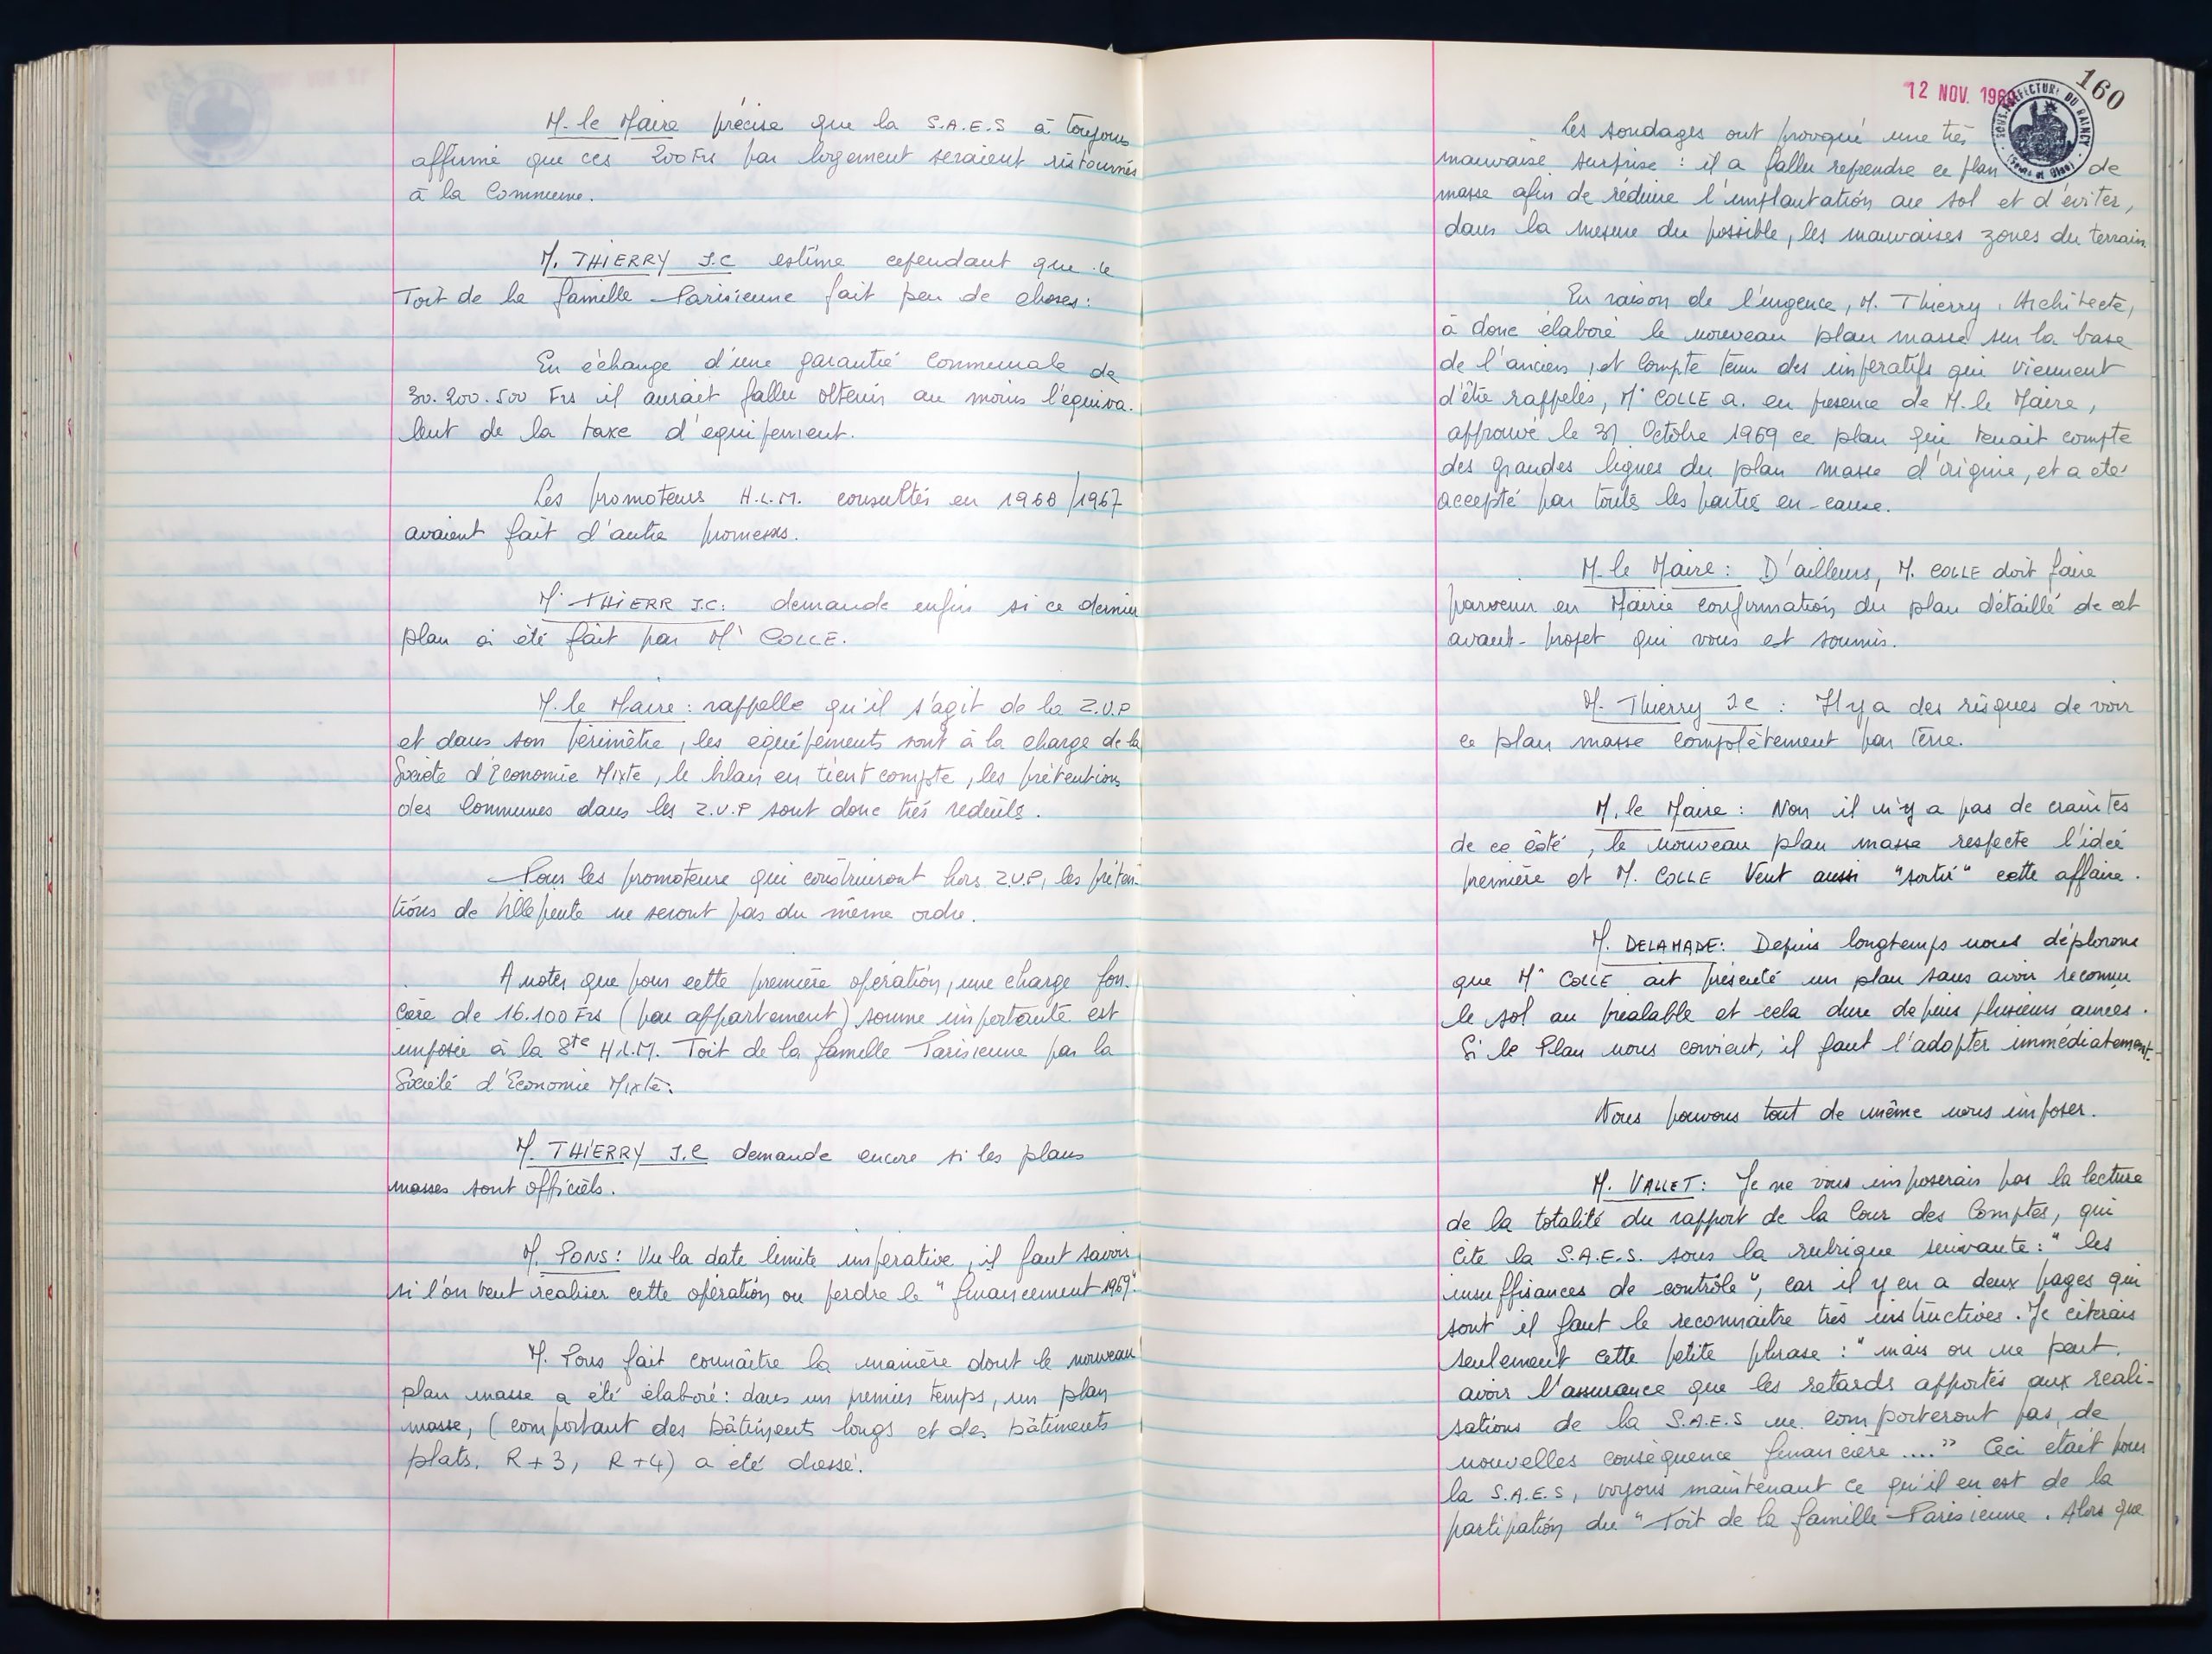 M. le Maire précise que la S.A.E.S à toujours
affirmé que ces 200 Frs par logement seraient ristournés
à la Commune.
M. THIERRY J.C estime cependant que le
Toit de la famille Parisienne fait peu de choses :
En échange d'une garantie Communale de
30.200.500 Frs il aurait fallu obtenir au moins l'équiva.
lent de la taxe d'equipement.
Les promoteurs H.L.M. consultés en 1968/1967
avaient fait d'autre promesses.
M. THIERR J.C: demande enfin si ce dernier
plan a été fait par Mr COLLE.
M. le Maire : rappelle qu'il s'agit de la Z.U.P
et dans son périmètre, les équipements sont à la charge de la
Société d'Economie Mixte, le bilan en tient compte, les prétentions
des Communes dans les Z.U.P sont donc très reduits.
Pour les promoteurs qui construiront hors Z.U.P, les préten-
tions de Villepinte ne seront pas du même ordre.
A noter que pour cette première opération, une charge fon.
cière de 16.100 Frs (par appartement) somme importante est
imposée à la Sté H.L.M. Toit de la famille Parisienne par la
Société d'Economie Mixte.
M. THIERRY J.C demande encore si les plans
masses sont officiels.
M. PONS : Vu la date limite impérative, il faut savoir
si l'on veut réaliser cette opération ou perdre le "financement 1969".
M. Pons fait connaître la manière dont le nouveau
plan masse a été élaboré : dans un premier temps, un plan
masse, (comportant des bâtiments longs et des bâtiments
plats, R+3, R+4) a été dressé.
12 NOV. 196
160
SOUS-PREFECTURE DU RAINCY
(Seine et Oise)
Les sondages ont provoqué une très
mauvaise surprise : il a fallu reprendre ce plan de
masse afin de réduire l'implantation au sol et d'éviter,
dans la mesure du possible, les mauvaises zones du terrain.
En raison de l'urgence, M. Thierry, Architecte,
à donc élaboré le nouveau plan masse sur la base
de l'ancien, et compte tenu des impératifs qui viennent
d'être rappelés, Mr COLLE a. en presence de M. le Maire,
approuvé le 31 Octobre 1969 ce plan qui tenait compte
des grandes lignes du plan masse d'origine, et a été
accepté par toute les parties en-cause.
M. le Maire : D'ailleurs, M. COLLE doit faire
parvenir en Mairie confirmation du plan détaillé de cet
avant-projet qui vous est soumis.
M. Thierry J.C : Il y a des risques de voir
ce plan masse complètement par terre.
M. le Maire : Non il n'y a pas de craintes
de ce côté, le nouveau plan masse respecte l'idée
première et M. COLLE Veut aussi "sortir" cette affaire.
M. DELAMADE : Depuis longtemps nous déplorons
que Mr COLLE ait présenté un plan sans avoir reconnu
le sol au préalable et cela dure depuis plusieurs années.
Si le Plan nous convient, il faut l'adopter immédiatement.
Nous pouvons tout de même nous imposer.
M. VALLET : Je ne vous imposerais pas la lecture
de la totalité du rapport de la Cour des Comptes, qui
cite la S.A.E.S. sous la rubrique suivante : "les
insuffisances de contrôle", car il y en a deux pages qui
sont il faut le reconnaître très instructives. Je citerais
seulement cette petite phrase : "mais on ne peut
avoir l'assurance que les retards apportés aux réali-
sations de la S.A.E.S ne comporteront pas de
nouvelles conséquence financière ...." Ceci était pour
la S.A.E.S, voyons maintenant ce qu'il en est de la
partipation du "Toit de la famille Parisienne. Alors que